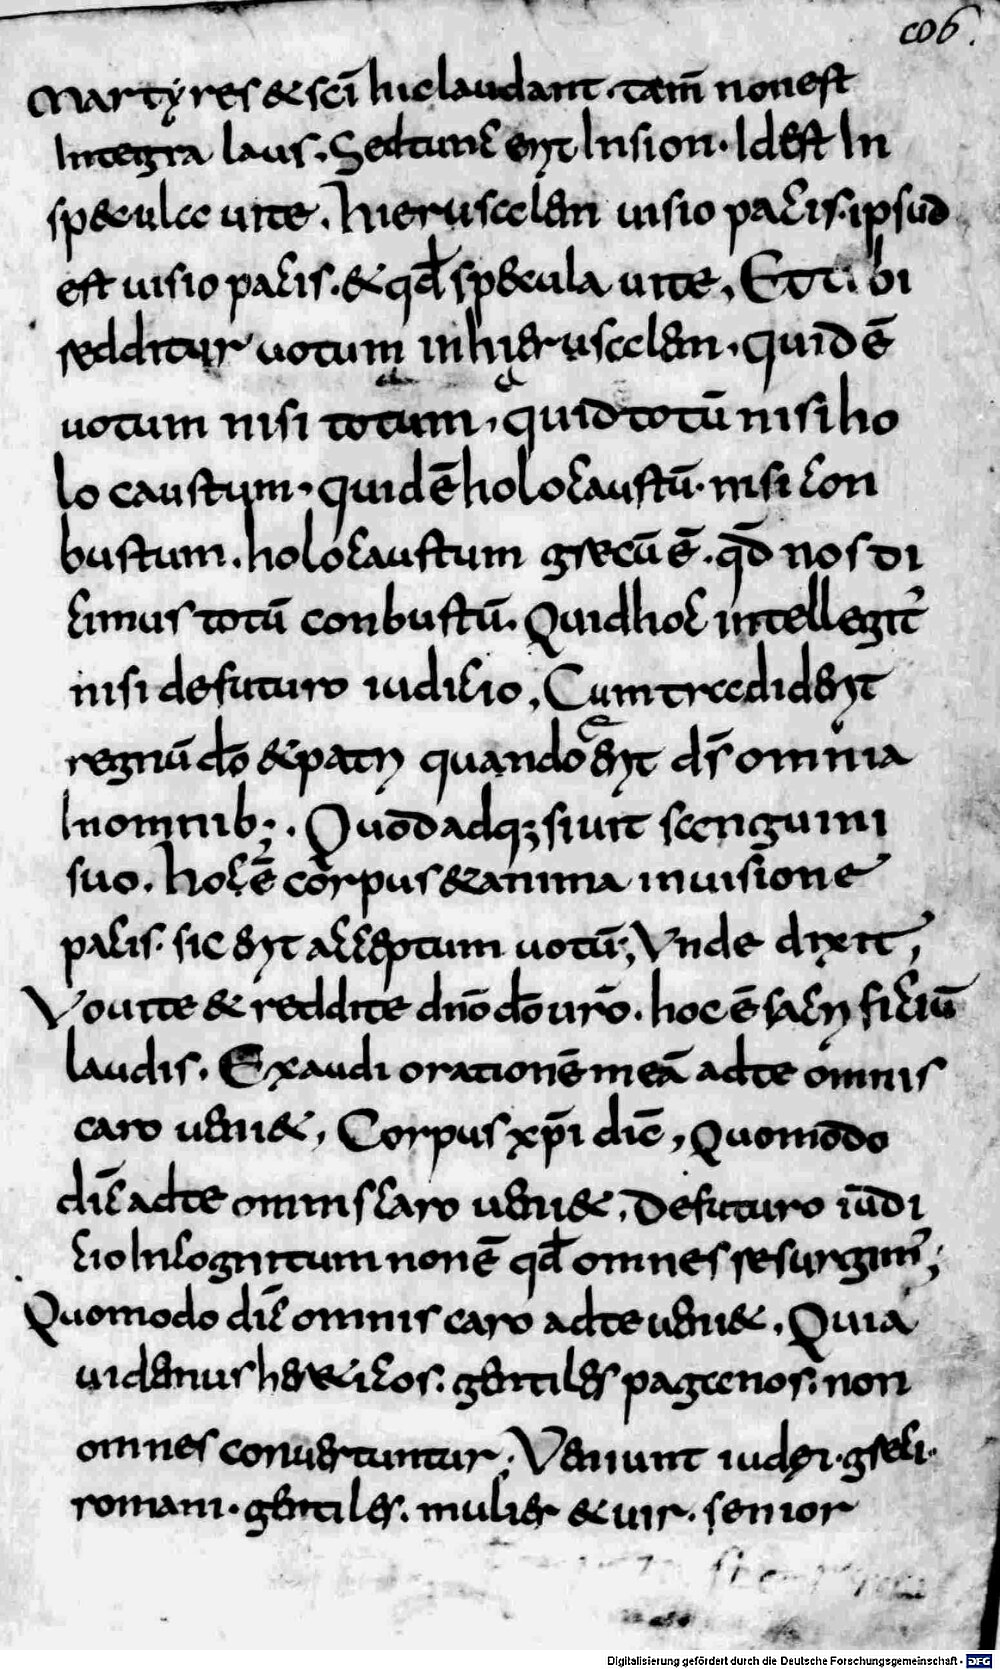 106.
Martyres & sc̄i hic laudant. tam̄ non est
Integra laus. Sed tunc erit In sion. Id est In
specula vite. hierusalem uisio pacis. ipsud
est uisio pacis. & qd̄ specula uite, Et tibi
redditur uotum in hierusalem. quid ē
uotum nisi totum, quid totū nisi ho
lo caustum. quid ē holocaustū. nisi con
bustum. holocaustum grecū ē. qd̄ nos di
cimus totū conbustū. Quid hoc intellegit᷑
nisi de futuro iudicio, Cum tradiderit
regnū do̅ & patri quando erit ds̄ omnia
In omnib;. Quod adq; siuit sanguini
suo. hoc ē corpus & anima in uisione
pacis. sic erit acceptum uotū; Vnde dixit,
Vouite & reddite dn̄o do̅ ur̄o. hoc ē sacrificiū
laudis. Exaudi orationē meā ad te omnis
caro ueni&, Corpus xp̄i dic̄, Quomodo
dic̄ ad te omnis caro ueni&. De futuro iudi
cio Incognitum non ē qd̄ omnes resurgun᷑;
Quomodo dic̄ omnis caro ad te ueni&. Quia
uidemus hereticos. gentiles paganos. non
omnes conuertuntur. Veniunt iudęi. greci.
romani. gentiles. mulier & uir. senior
Digitalisierung gefördert durch die Deutsche Forschungsgemeinschaft - DFG